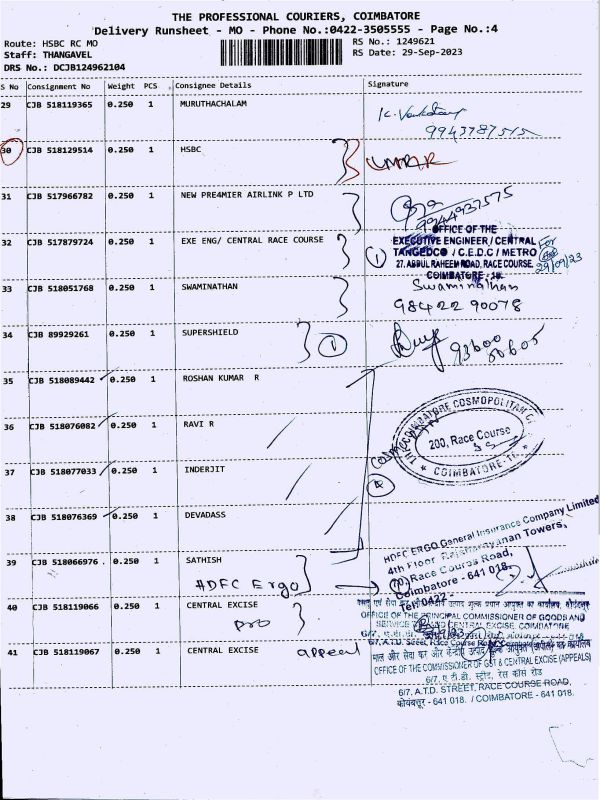 THE PROFESSIONAL COURIERS, COIMBATORE
Delivery Runsheet - MO - Phone No.:0422-3505555 - Page No.:4
Route: HSBC RC MO
RS No.: 1249621
Staff: THANGAVEL
RS Date: 29-Sep-2023
DRS No.: DCJB124962104
S No Consignment No Weight PCS Consignee Details Signature
29 CJB 518119365 0.250 1 MURUTHACHALAM
9943787515
30 CJB 518129514 0.250 1 HSBC
31 CJB 517966782 0.250 1 NEW PRE4MIER AIRLINK P LTD
9944937575
OFFICE OF THE
32 CJB 517879724 0.250 1 EXE ENG/ CENTRAL RACE COURSE 1 EXECUTIVE ENGINEER / CENTRAL
TANGEDCO / C.E.D.C / METRO
27, ABDUL RAHEEM ROAD, RACE COURSE,
COIMBATORE - 18.
For
29/09/23
33 CJB 518051768 0.250 1 SWAMINATHAN Swaminathan
98422 90078
34 CJB 89929261 0.250 1 SUPERSHIELD 1
93600
35 CJB 518089442 0.250 1 ROSHAN KUMAR R
36 CJB 518076082 0.250 1 RAVI R
THE COIMBATORE COSMOPOLITAN
200, Race Course
COIMBATORE
37 CJB 518077033 0.250 1 INDERJIT
38 CJB 518076369 0.250 1 DEVADASS
39 CJB 518066976 0.250 1 SATHISH
HDFC Ergo
HDFC ERGO General Insurance Company Limited
4th Floor, Towers,
Race Course Road,
Coimbatore - 641 018.
Tel: 0422 -
40 CJB 518119066 0.250 1 CENTRAL EXCISE
PRO
OFFICE OF THE PRINCIPAL COMMISSIONER OF GOODS AND
SERVICE CENTRAL EXCISE, COIMBATORE
41 CJB 518119067 0.250 1 CENTRAL EXCISE appeal
OFFICE OF THE COMMISSIONER OF GST & CENTRAL EXCISE (APPEALS)
6/7, ए टी.डी. स्ट्रीट, रेस कोर्स रोड
6/7, A.T.D. STREET, RACE COURSE ROAD,
कोयंबत्तूर - 641 018. / COIMBATORE - 641 018.